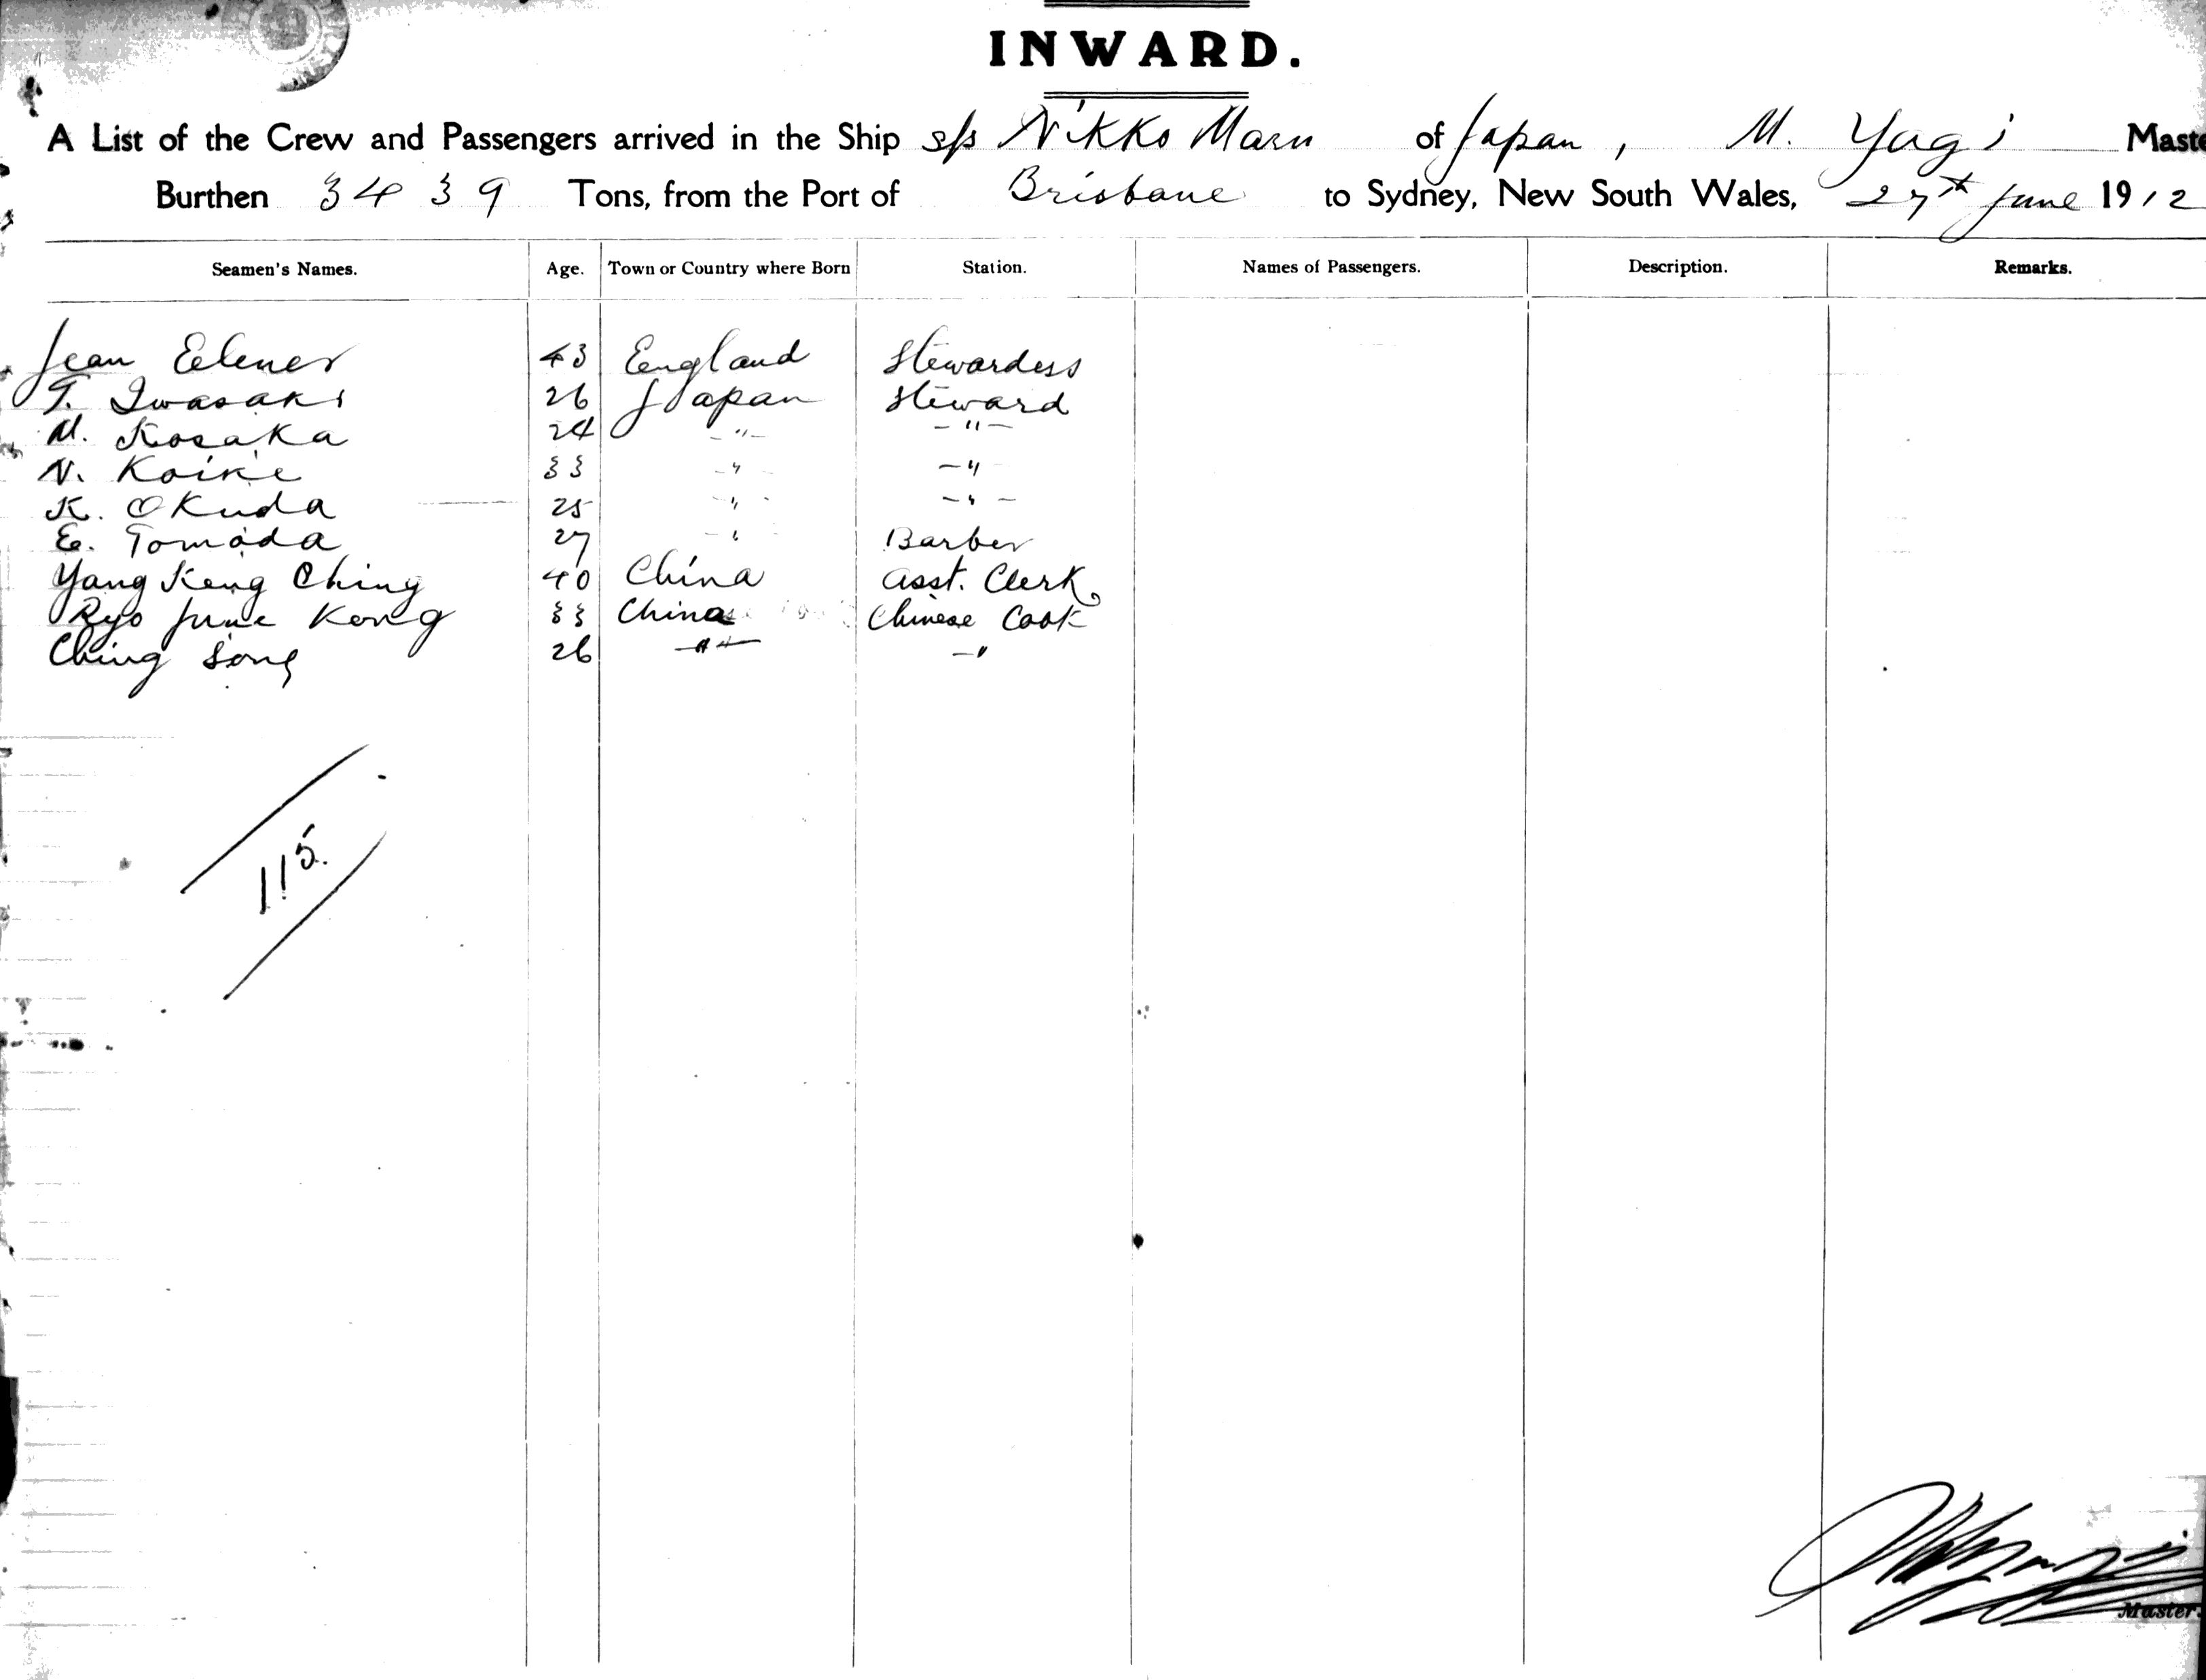 INWARD.
A List of the Crew and Passengers arrived in the Ship s/s Nikko Maru of Japan, M. Yagi Maste
Burthen 3439 Tons, from the Port of Brisbane to Sydney, New South Wales, 27th June 1912
Seamen's Names. Age. Town or Country where Born Station. Names of Passengers. Description. Remarks.
Jean 43 England Stewardess
T. Iwasaki 26 Japan Steward
M. Kosaka 24 -"- -"-
N. Koike 33 -"- -"
K. Okuda 25 -"- -"-
E. Tomoda 27 -" Barber
Yang Keng Ching 40 China Asst. Clerk
Ryo June Kong 33 China Chinese Cook
Ching Song 26 -"- -"
115.
Master.